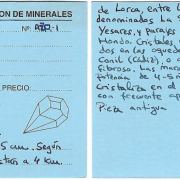 ON DE MINERALES
Nº
PRECIO:
5 cm. Según
a 4 km.
de Lorca, entre l
denominados La S
Yesares, y parajes
Hondo. Cristales,
dos en las oqueda
Conil (Cádiz), o
fibroso. Las mac
de 4-5
Cristaliza en el
con frecuente ap
Pieza antigua